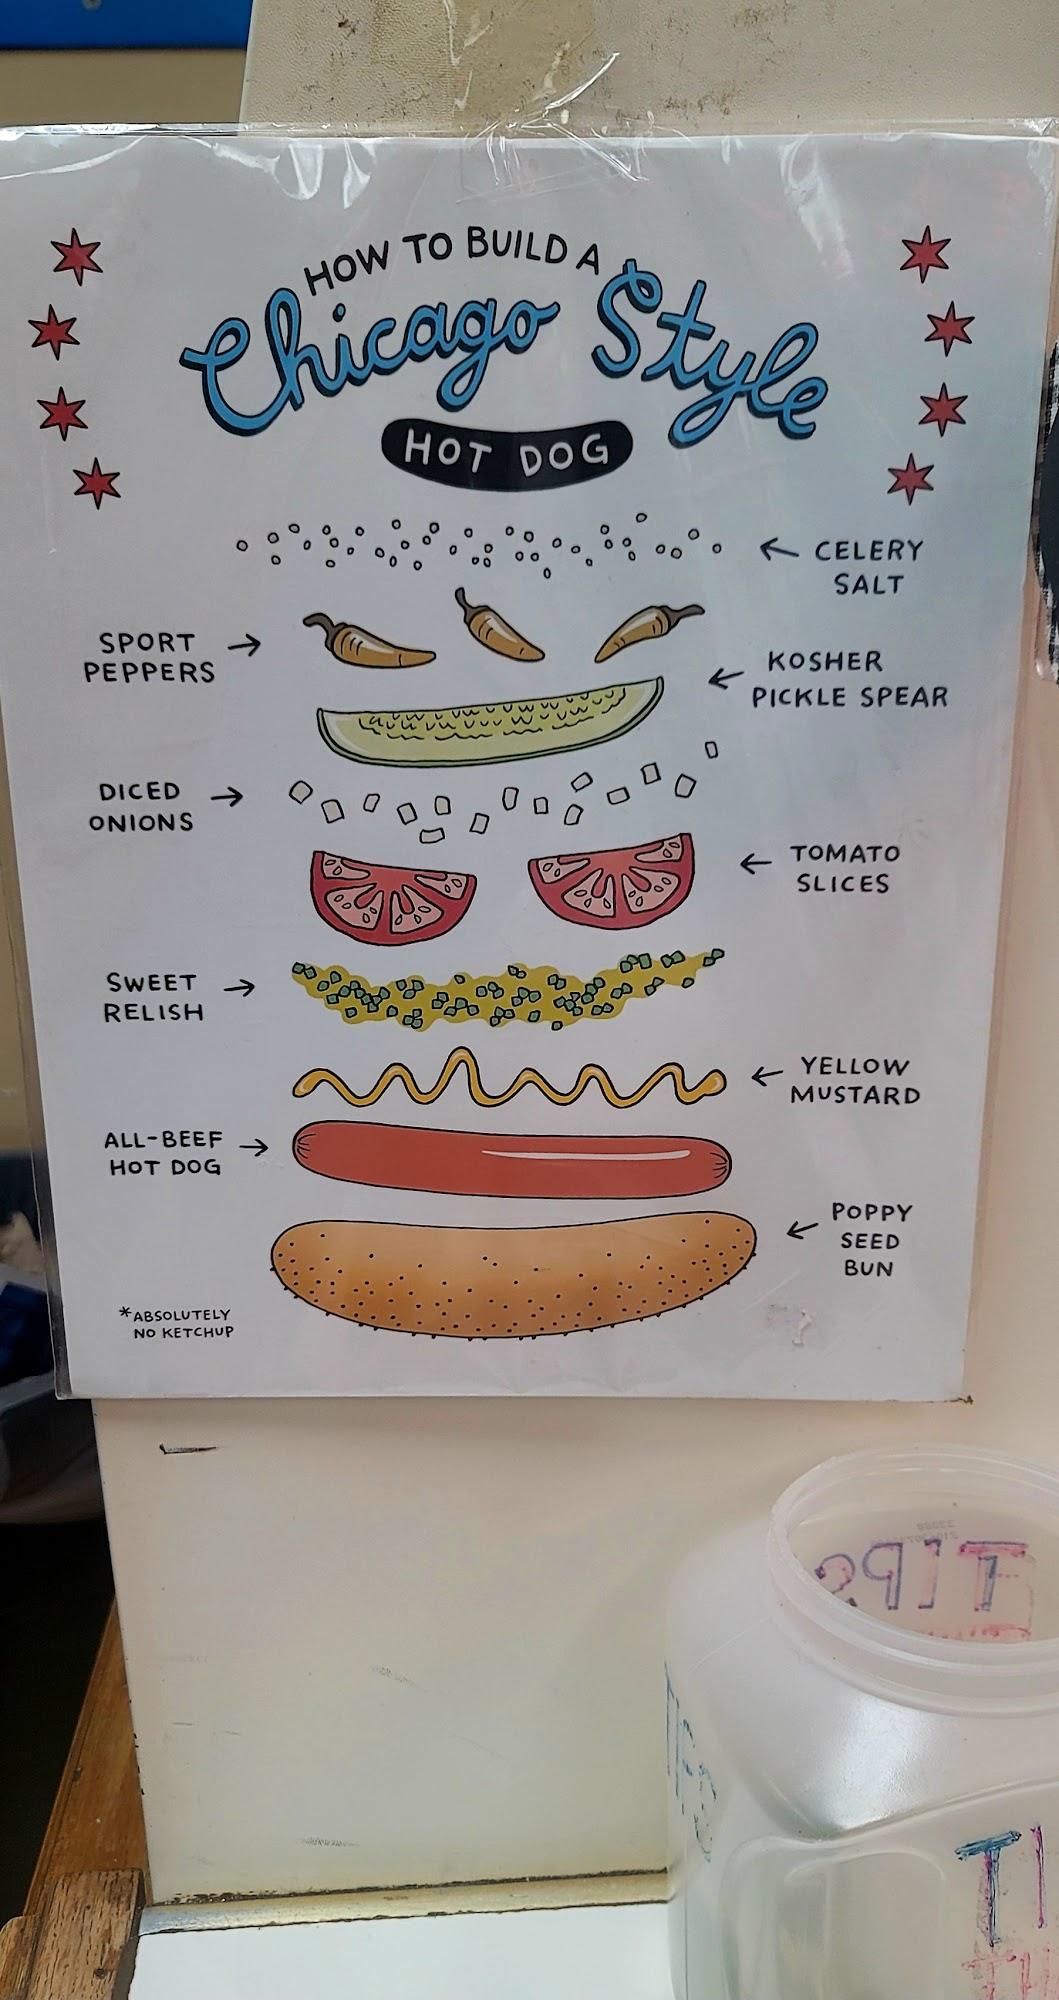 HOW TO BUILD A
Chicago Style
HOT DOG
CELERY
SALT
SPORT
PEPPERS
KOSHER
PICKLE SPEAR
DICED
ONIONS
TOMATO
SLICES
SWEET
RELISH
YELLOW
MUSTARD
ALL-BEEF
HOT DOG
POPPY
SEED
BUN
*ABSOLUTELY
NO KETCHUP
TIPS